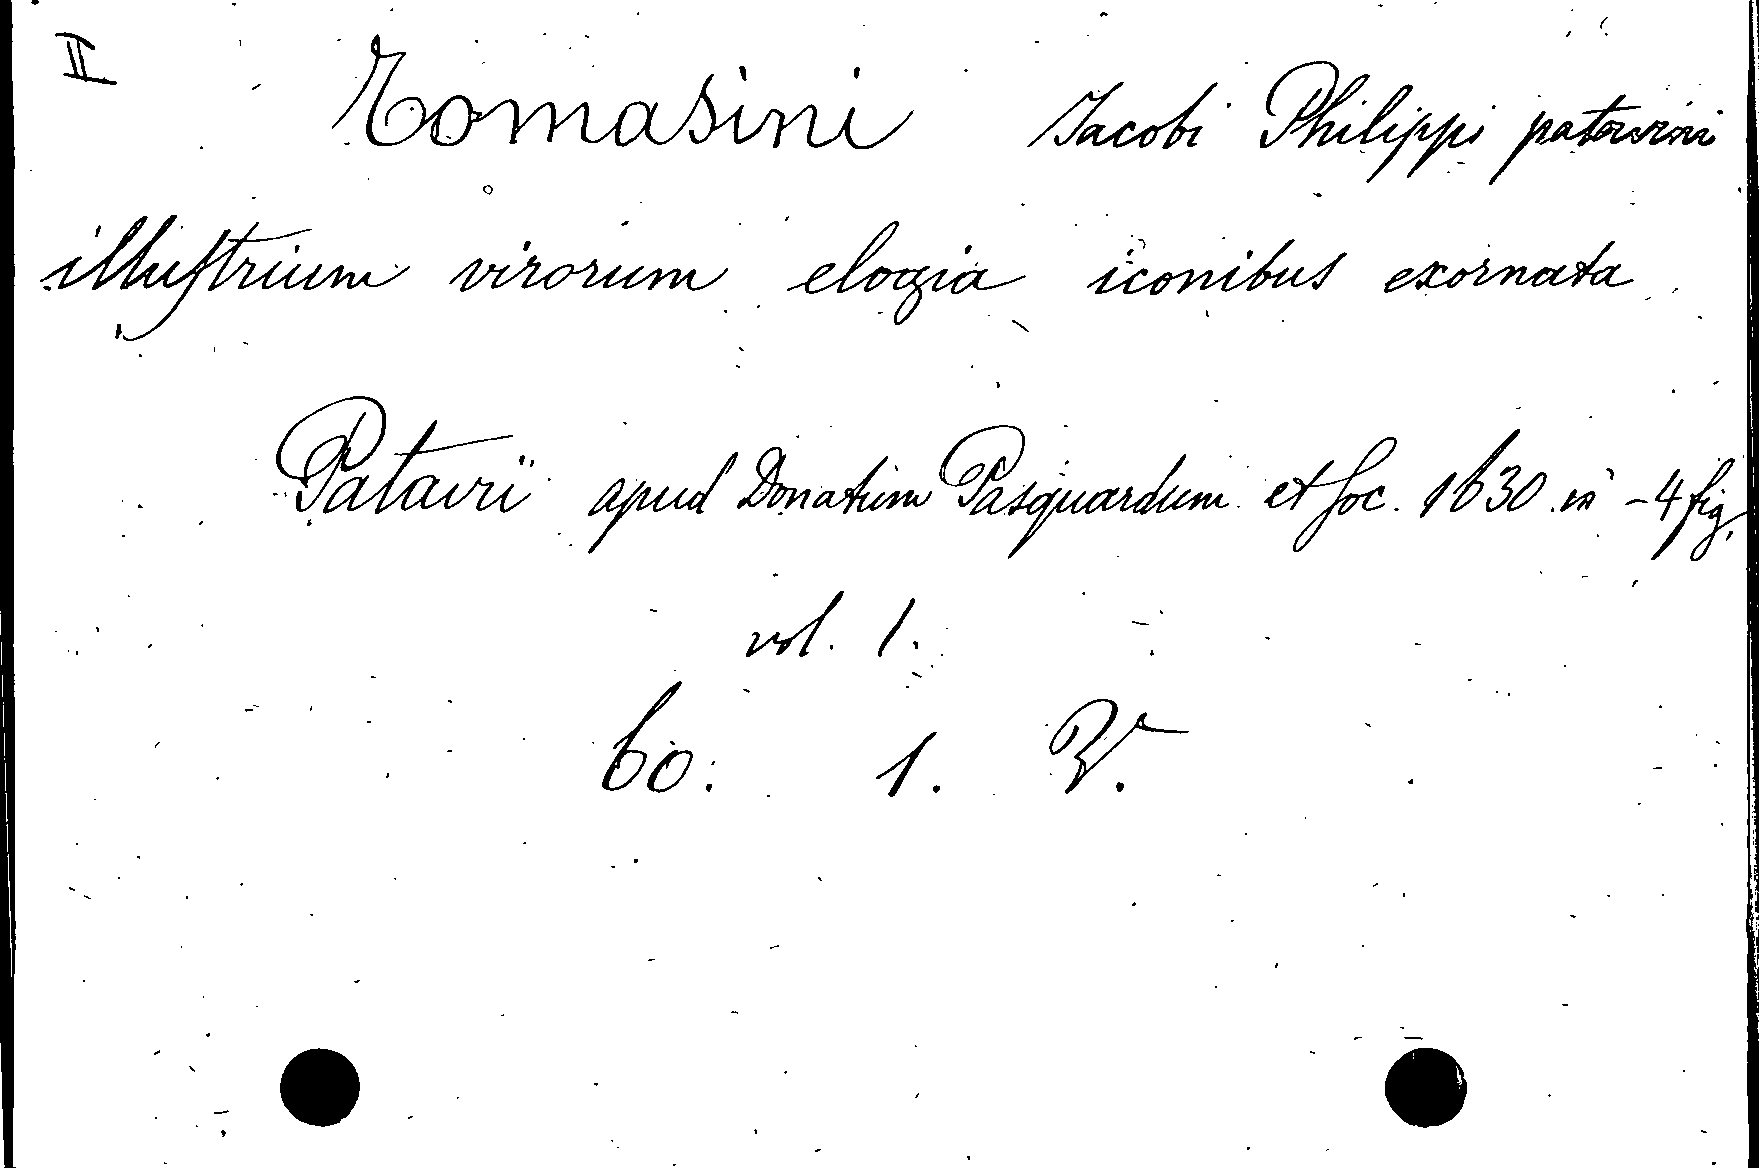 II
Tomasini Jacobi Philippi patavini
illustrium virorum elogia iconibus exornata
Patavii apud Donatum Pasquardum et soc. 1630 in -4 fig.
vol. 1.
60. 1. Z.